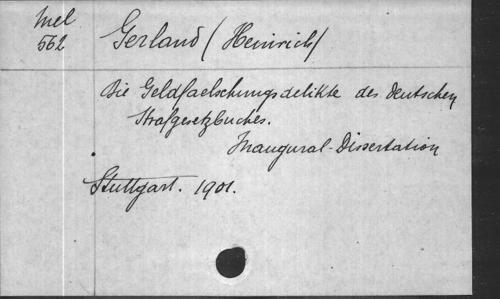 Mel
562
Gerland (Heinrich)
Die Geldfaelschungsdelikte des deutschen
Strafgesetzbuches.
Inaugural-Dissertation
Stuttgart. 1901.